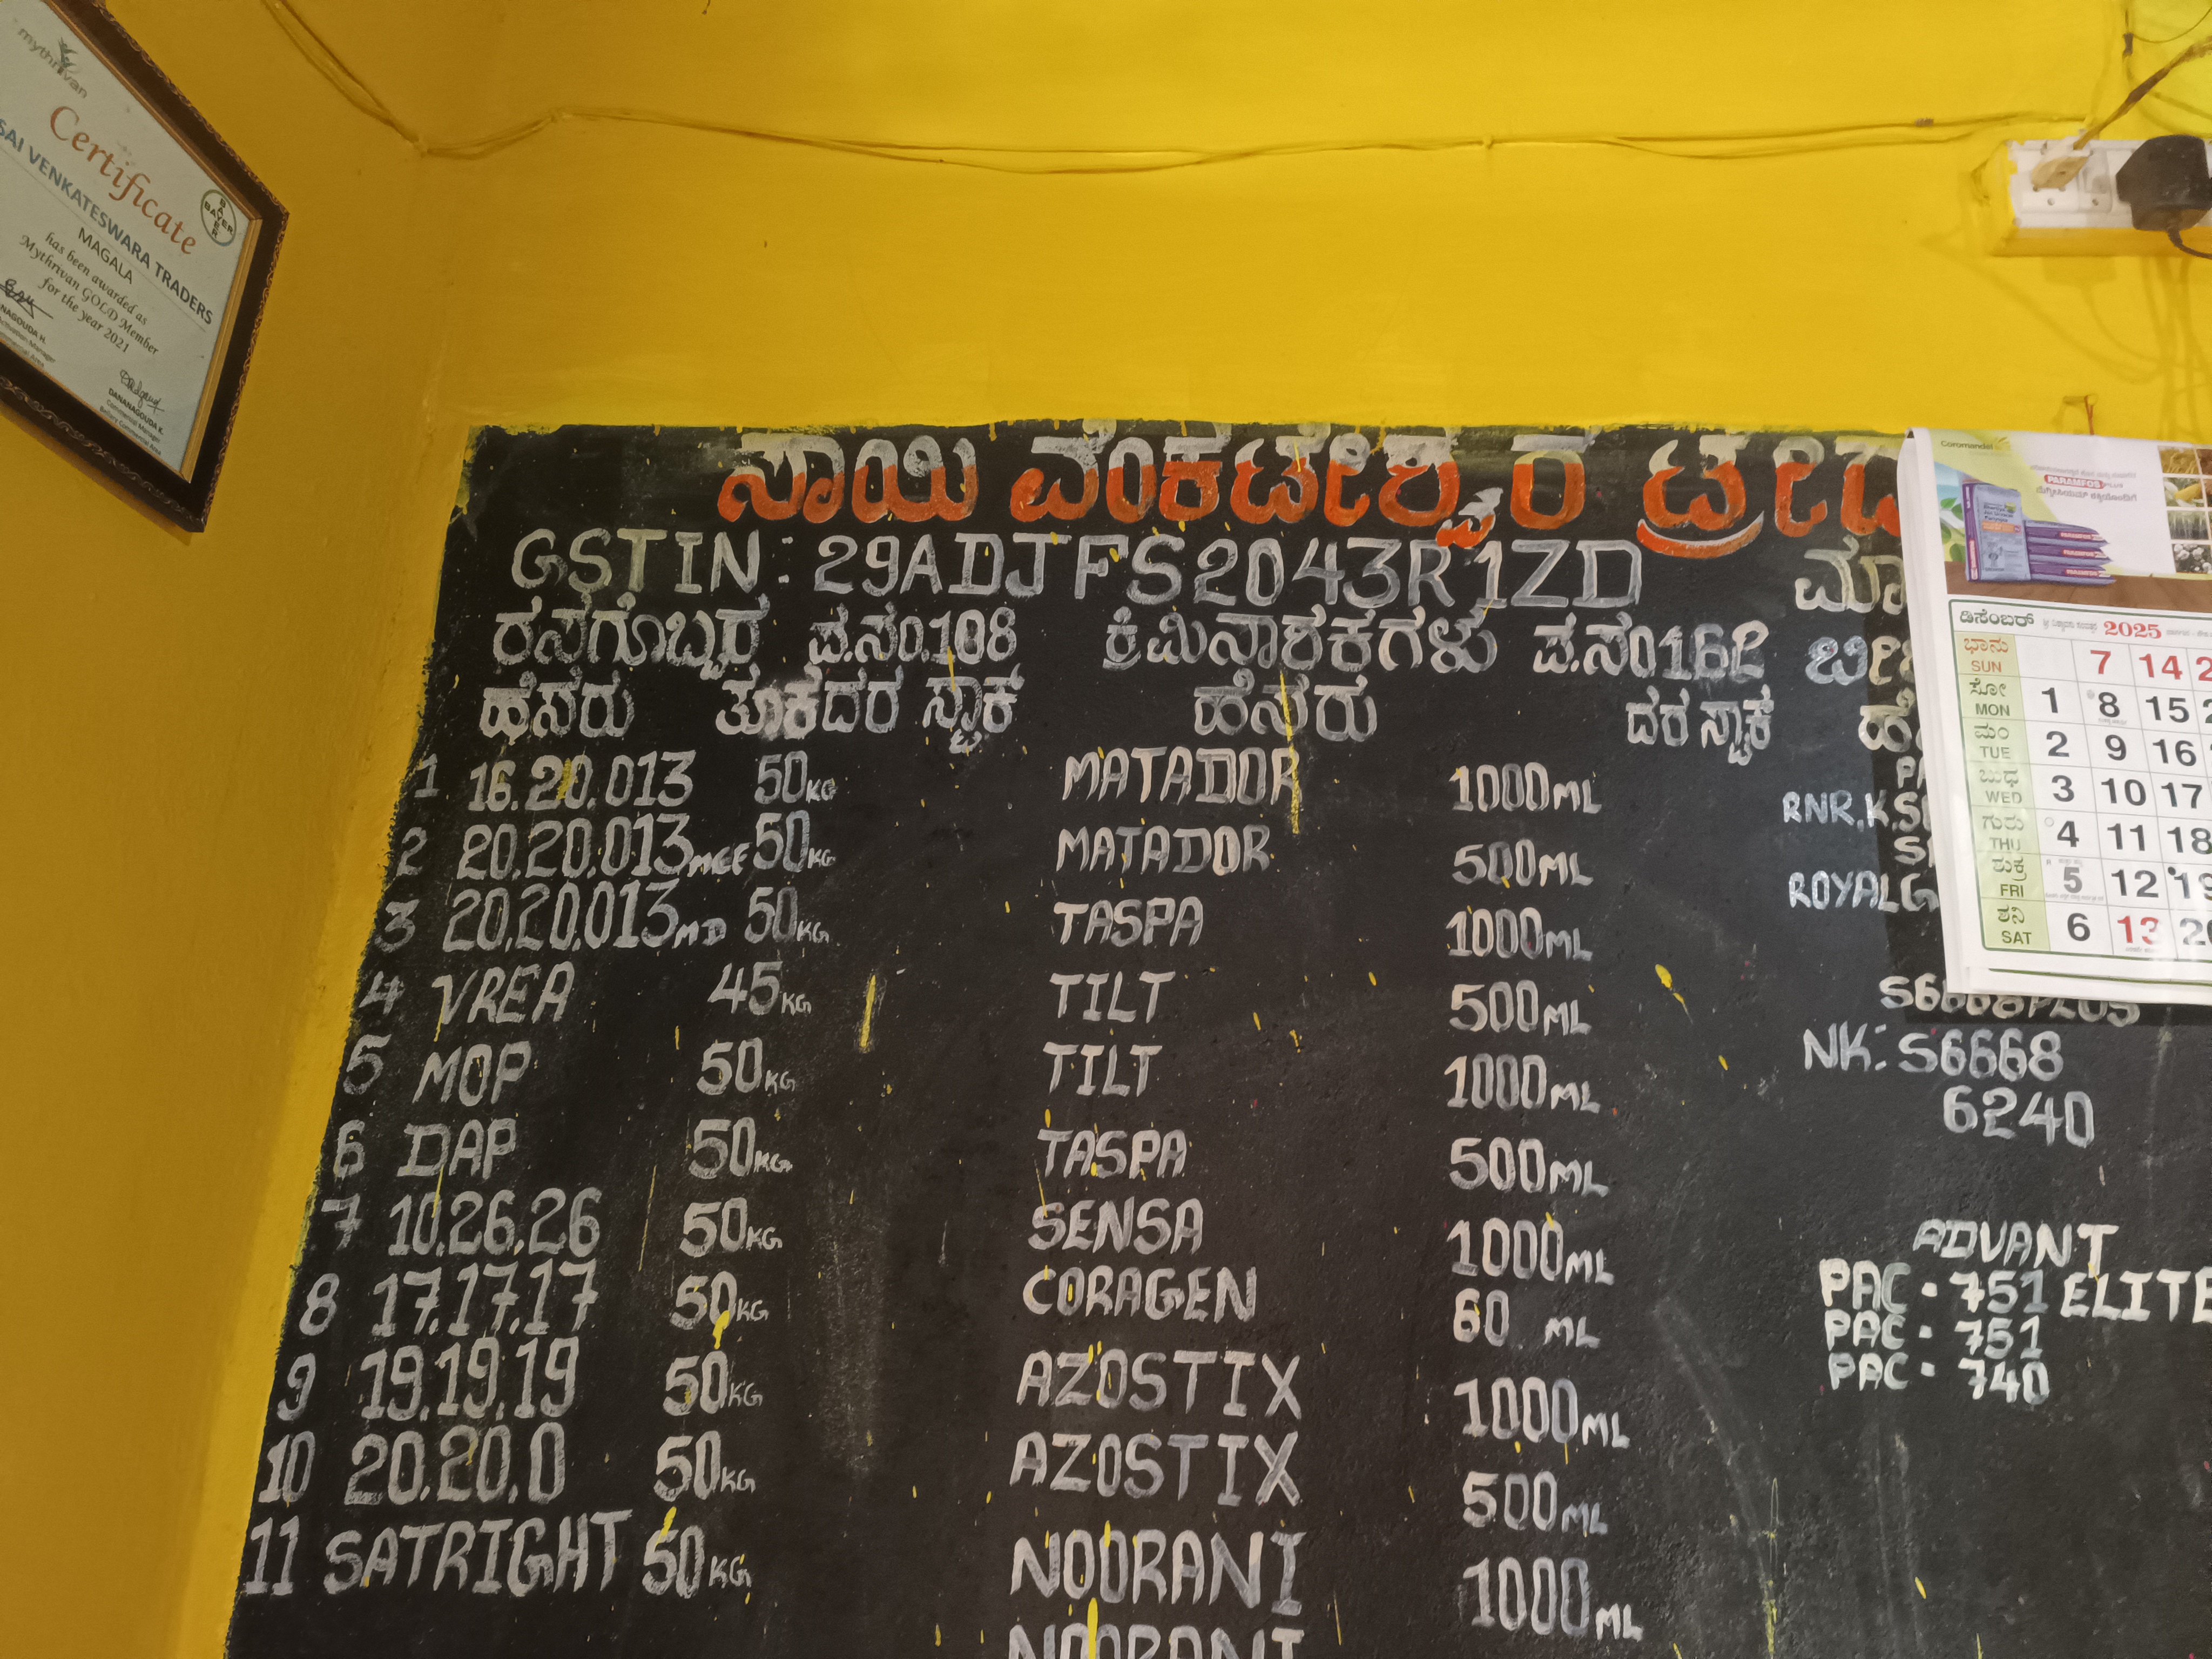 mythrivan
Certificate
SAI VENKATESWARA TRADERS
MAGALA
has been awarded as
Mythrivan GOLD Member
for the year 2021
BAYER
DANANAGOUDA K.
ಸಾಯಿ ವೆಂಕಟೇಶ್ವರ ಟ್ರೇಡ
GSTIN: 29ADJFS2043R1ZD
ರಸಗೊಬ್ಬರ ಪ.ನಂ.108 ಕ್ರಿಮಿನಾಶಕಗಳು ಪ.ನಂ162
ಹೆಸರು ತೂಕ ದರ ಸ್ಟಾಕ್ ಹೆಸರು ದರ ಸ್ಟಾಕ್
1 16.20.013 50KG MATADOR 1000ML
2 20.20.013MCF 50KG MATADOR 500ML
3 20.20.013MD 50KG TASPA 1000ML
4 VREA 45KG TILT 500ML
5 MOP 50KG TILT 1000ML
6 DAP 50KG TASPA 500ML
7 10.26.26 50KG SENSA 1000ML
8 17.17.17 50KG CORAGEN 60 ML
9 19.19.19 50KG AZOSTIX 1000ML
10 20.20.0 50KG AZOSTIX 500ML
11 SATRIGHT 50KG NOORANI 1000ML
NOORANI
RNR.
S6668PLUS
NK: S6668
6240
ADVANT
PAC - 751 ELITE
PAC - 751
PAC - 740
Coromandel
PARAMFOS PLUS
ಡಿಸೆಂಬರ್ 2025
ಭಾನು SUN 7 14
ಸೋಮ MON 1 8 15
ಮಂ TUE 2 9 16
ಬುಧ WED 3 10 17
ಗುರು THU 4 11 18
ಶುಕ್ರ FRI 5 12 19
ಶನಿ SAT 6 13 20